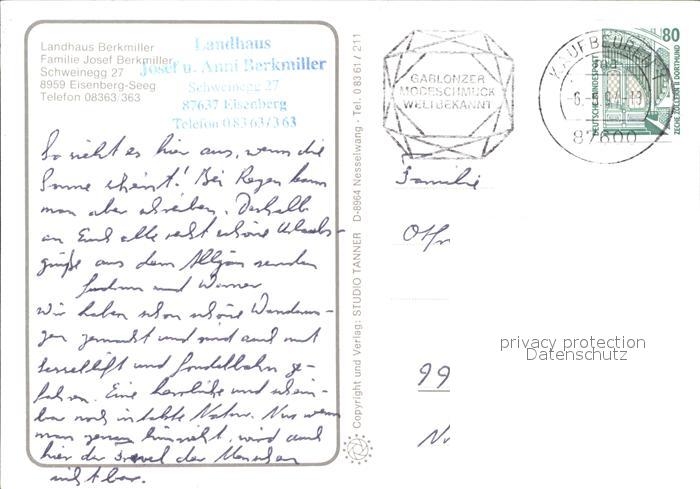 Landhaus Berkmiller
Familie Josef Berkmiller
Schweinegg 27
8959 Eisenberg-Seeg
Telefon 08363/363
Landhaus
Josef u. Anni Berkmiller
Schweinegg 27
87637 Eisenberg
Telefon 0 83 63 / 3 63
So sieht es hier aus, wenn die
Sonne scheint! Bei Regen kann
man aber schreiben. Deshalb
an Euch alle recht schöne Urlaubs-
grüße aus dem Allgäu senden
Gudrun und Werner
Wir haben schon schöne Wanderun-
gen gemacht und sind auch mit
Sessellift und Gondelbahn ge-
fahren. Eine herrliche und schein-
bar noch intakte Natur. Nur wenn
man genau hinsieht, wird auch
hier der Frevel der Menschen
sichtbar.
Copyright und Verlag: STUDIO TANNER D-8964 Nesselwang - Tel. 0 83 61 / 211
GABLONZER
MODESCHMUCK
WELTBEKANNT
KAUFBEUREN 1
87600
80
DEUTSCHE BUNDESPOST
ZECHE ZOLLERN II DORTMUND
Familie
99
privacy protection
Datenschutz